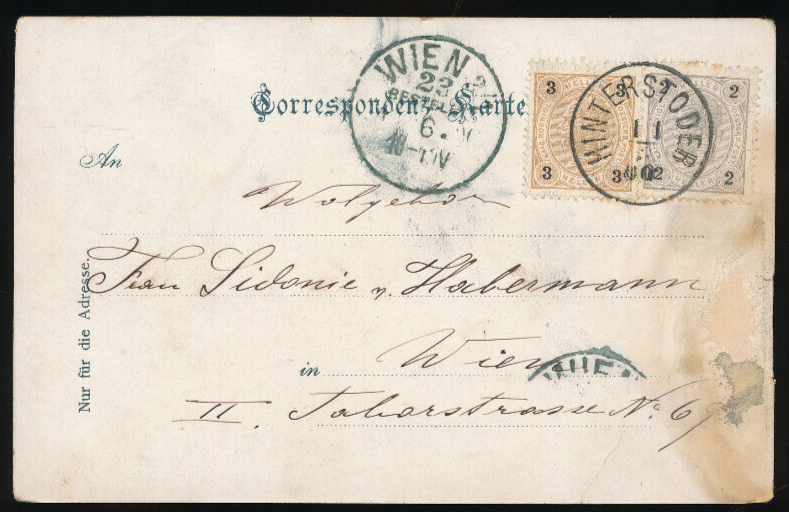 WIEN
22 2
BESTELLT
6. V
10-11V
Correspondenz-Karte
3 3 2 2
HELLER
3 3 2 2
HINTERSTODER
11
02
An
Wolgebor
Frau Sidonie v. Habermann
in Wien
WIEN
II. Taborstrasse No 69
Nur für die Adresse.